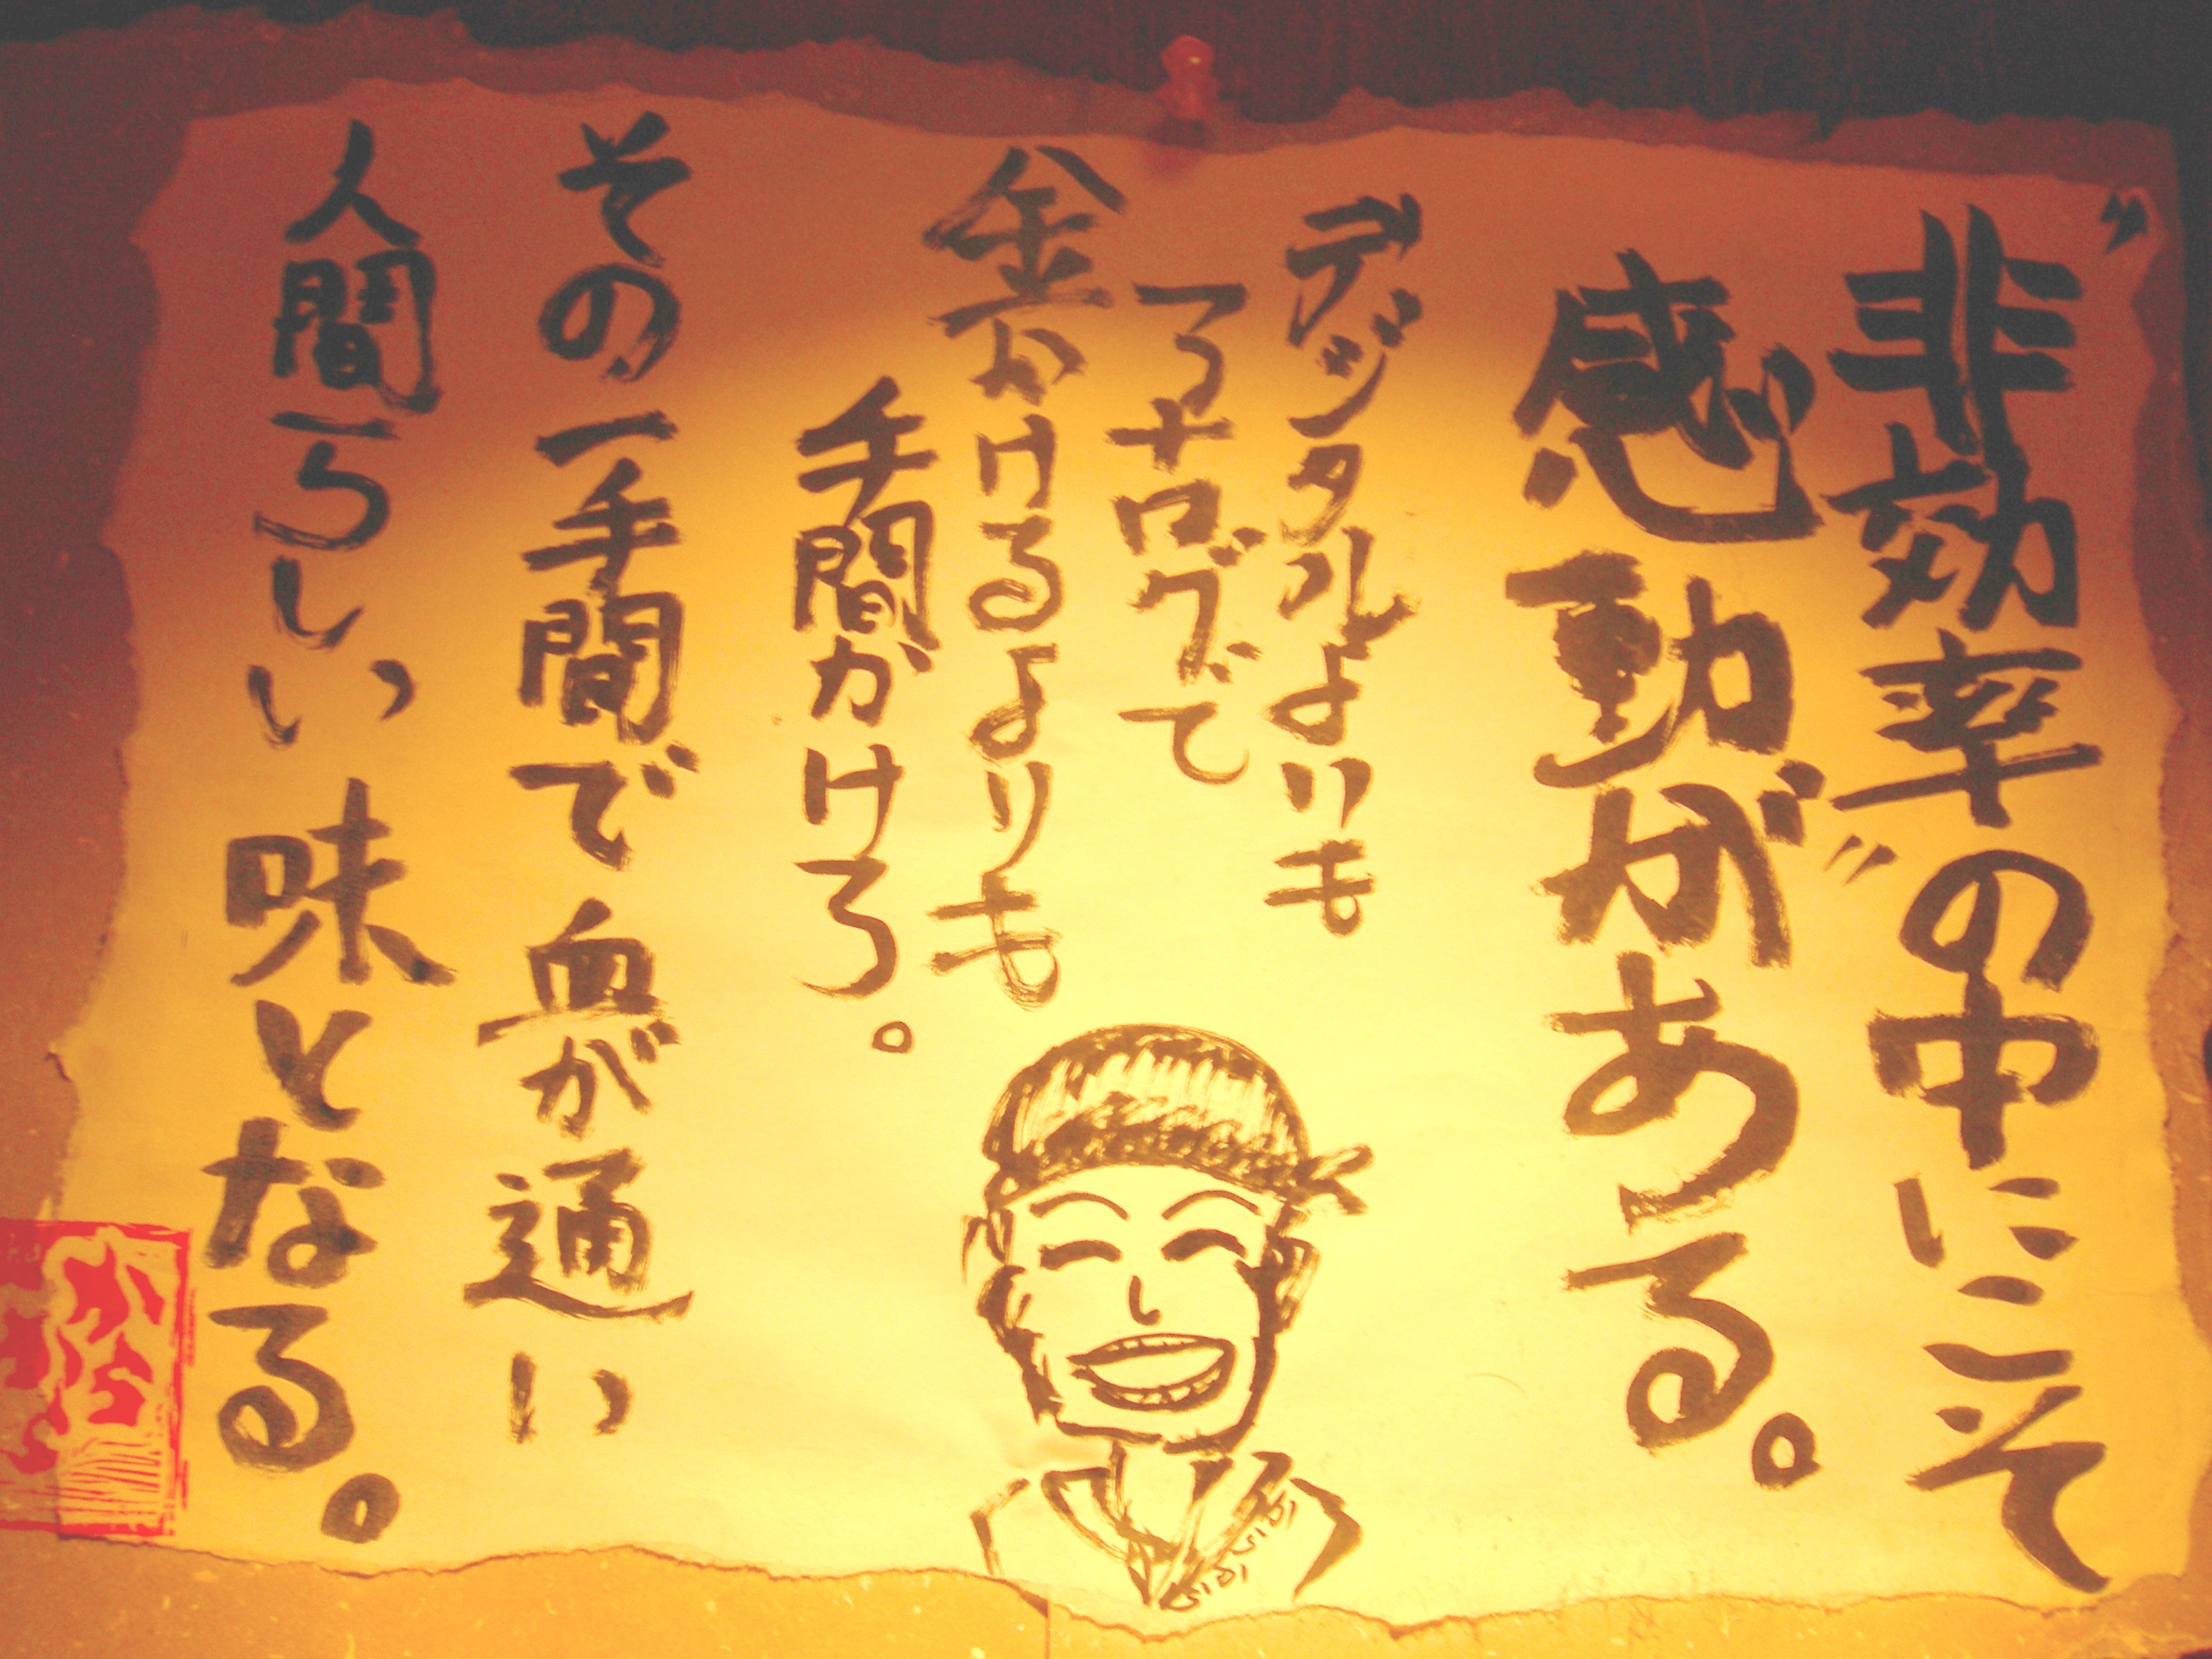 〝非効率〟の中にこそ
感動がある。
デジタルよりも
アナログで
金かけるよりも
手間かけろ。
その一手間で血が通い
人間らしい味となる。